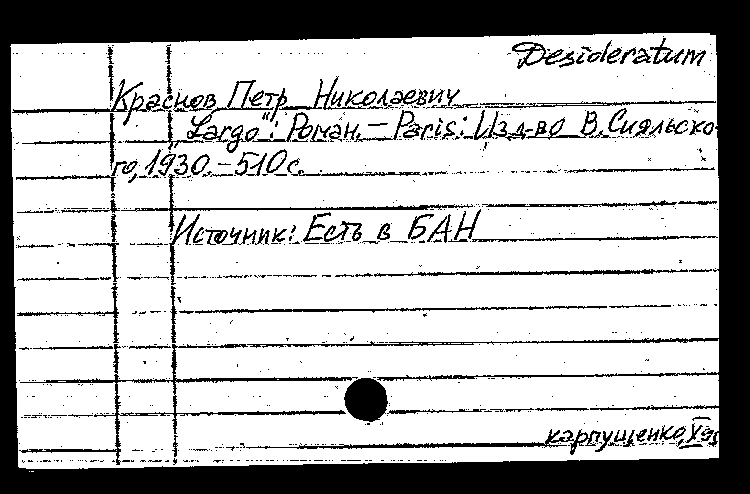 Desideratum
Краснов Петр Николаевич
„Largo“: Роман. — Paris: Изд-во В. Сияльско-
го, 1930. — 510 с.
Источник: Есть в БАН
карпущенко, V